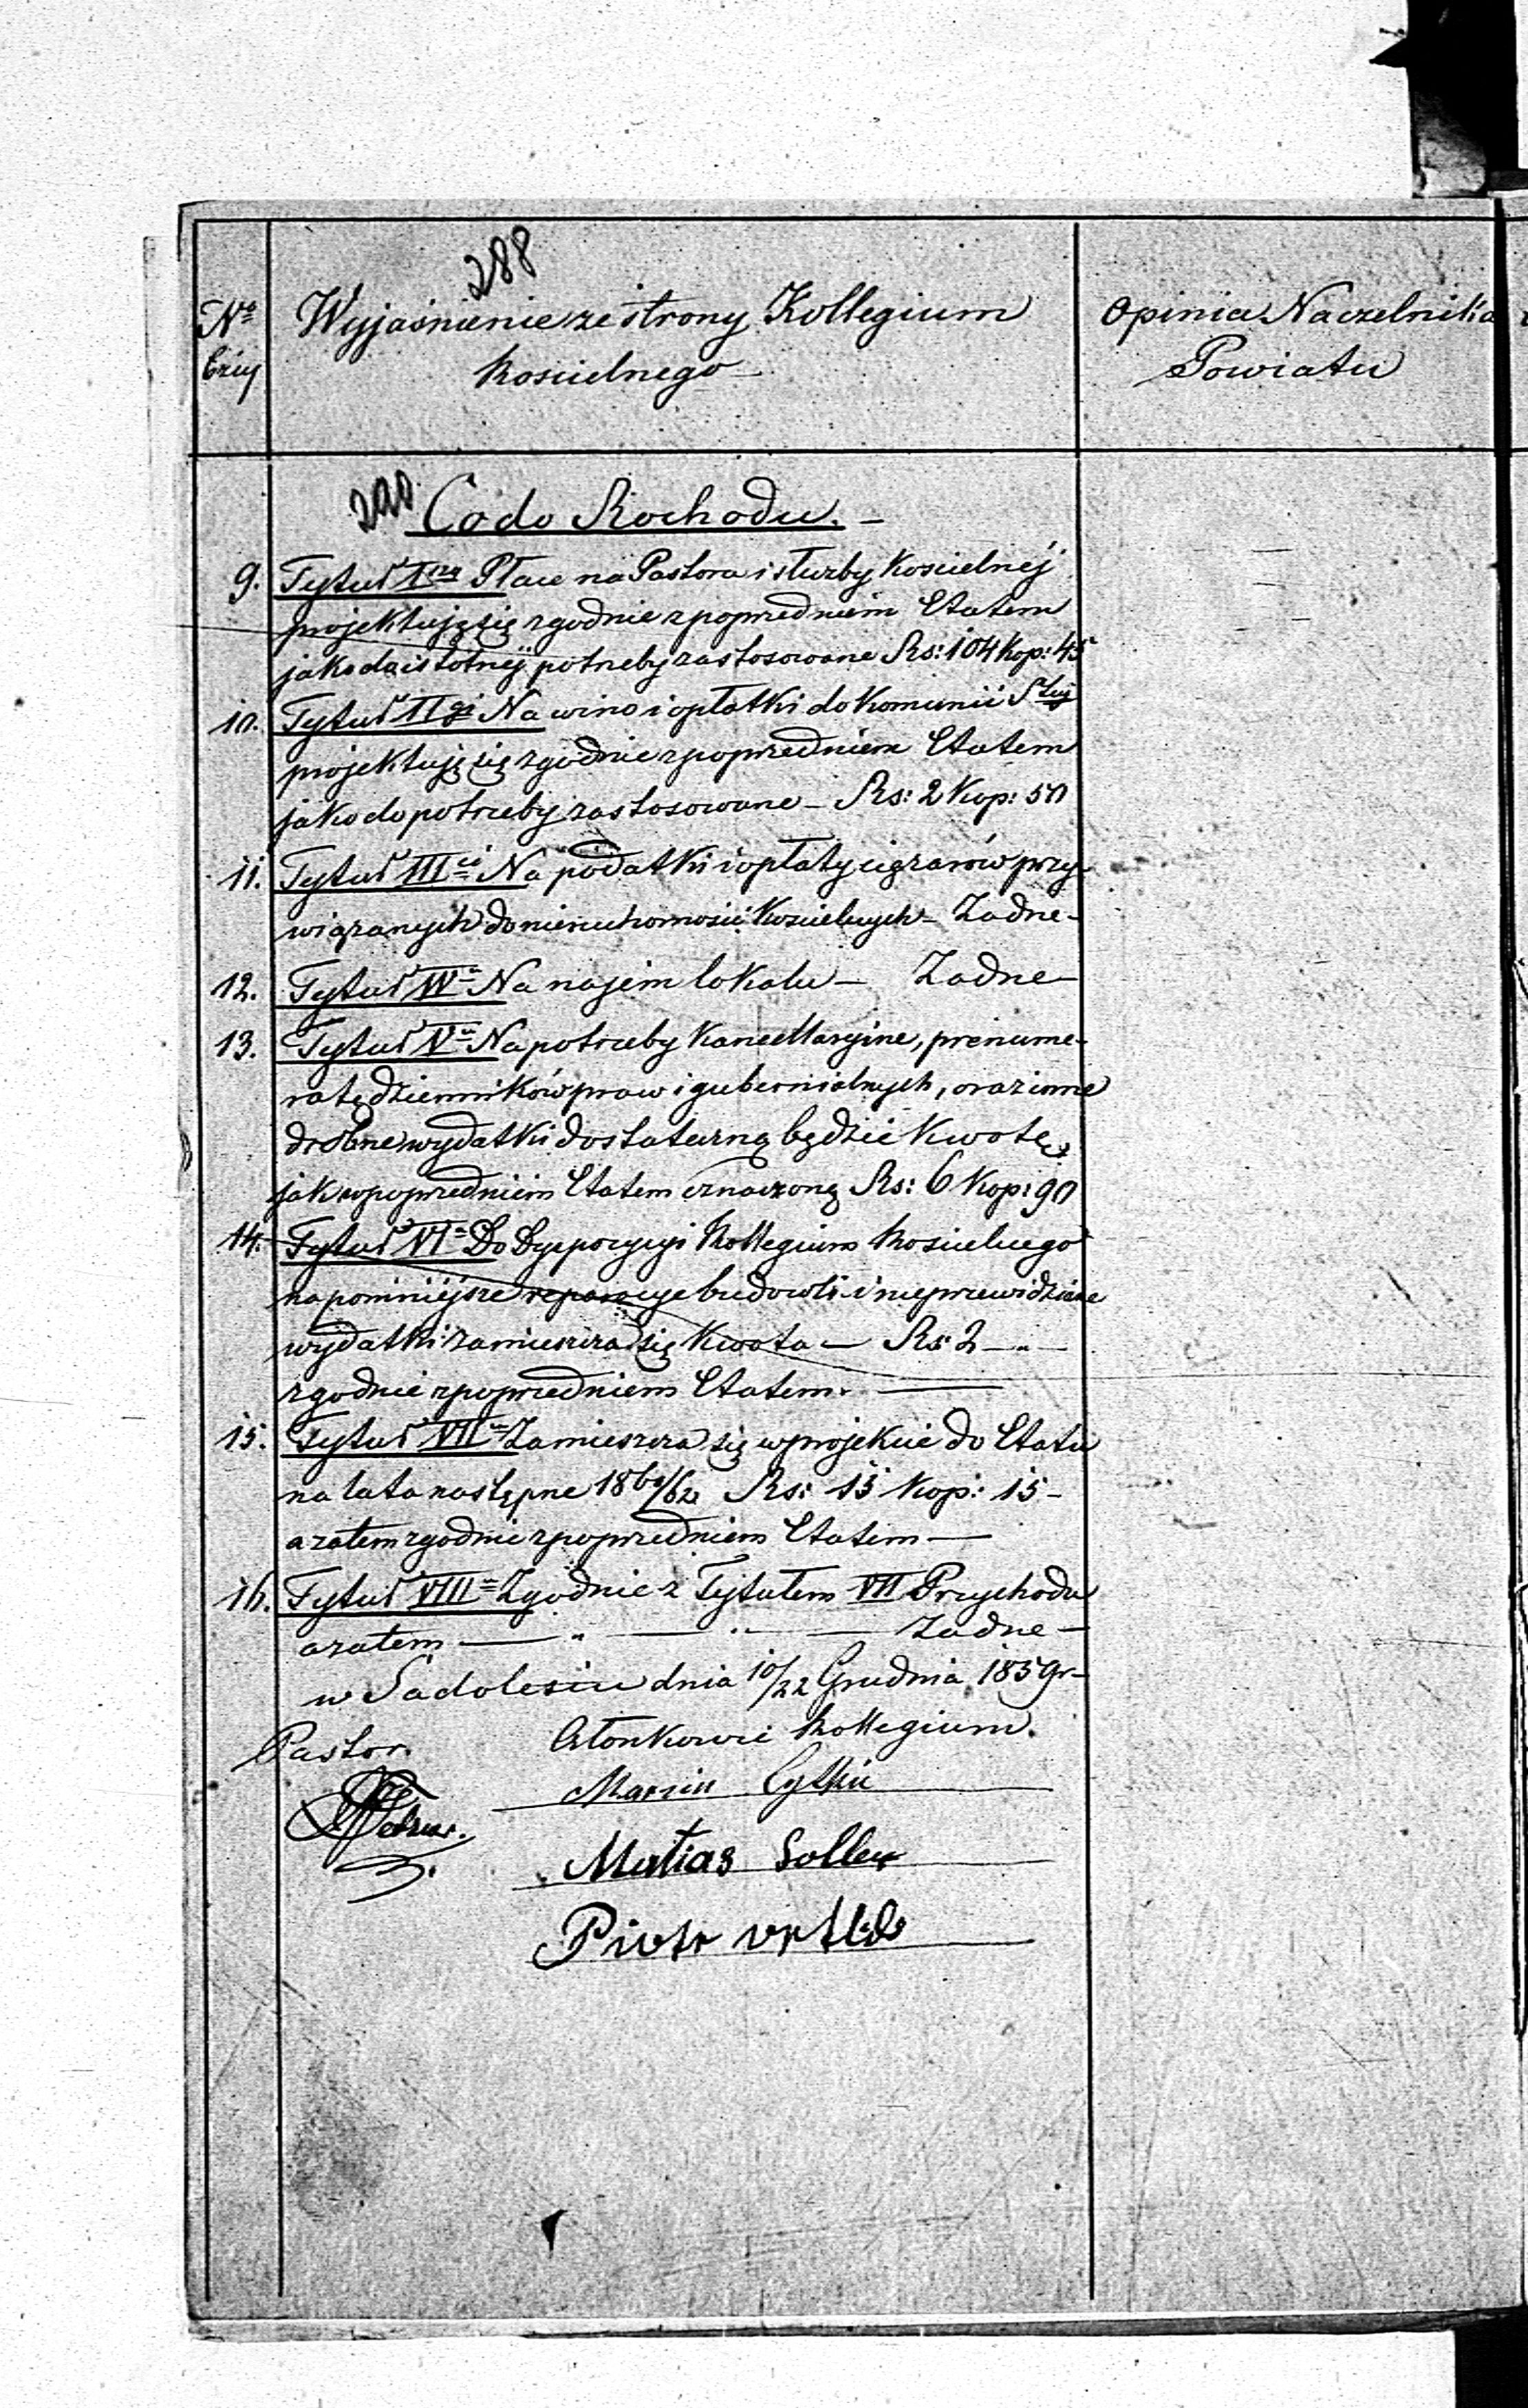 288
Nº bżcy
Wyjaśnienie ze strony Kollegium
Koscielnego
Opinia Naczelnika
Powiatu
290
Co do Rozchodu. –
9. Tytuł Iszy Płace na Pastora i służby Koscielnéj
projektuję się zgodnie z poprzedniem Etatem
jako do istotnéj potrzeby zastosowane Rs: 104 Kop: 45
10. Tytuł IIgi Na wino i opłatki do Komunii Stéj
projektuję się zgodnie z poprzedniem Etatem
jako do potrzeby zastosowane – Rs: 2 Kop: 50
11. Tytuł IIIci Na podatki i opłaty cięzarów przy-
wiązanych do nieruchomości Koscielnych – Zadne –
12. Tytuł IV Na najem lokalu – Zadne –
13. Tytuł V Na potrzeby Kancellaryine, prenume-
ratę dzienników praw i gubernialnych, oraz inne
drobne wydatki dostateczną będzie Kwotę
jak w poprzedniem Etatem oznaczoną Rs: 6 Kop: 90
14. Tytuł VI Do Dyspozycyi Kollegium Koscielnego
na pomniéjsze reparacye budowli i nieprzewidziane
wydatki zamieszcza się Kwota – Rs: 2 – „ –
zgodnie z poprzedniem Etatem. –
15. Tytuł VII Zamieszcza się w projekcie do Etatu
na lata następne 1860/62 Rs: 15 Kop: 15 –
a zatem zgodnie z poprzedniem Etatem –
16. Tytuł VIII Zgodnie z Tytułem VII Przychodu
a zatem – „ – „ – Zadne –
w Sadolesiu dnia 10/22 Grudnia 1859 r –
Pastor. Członkowie Kollegium.
Marzin
Matias
Piotr